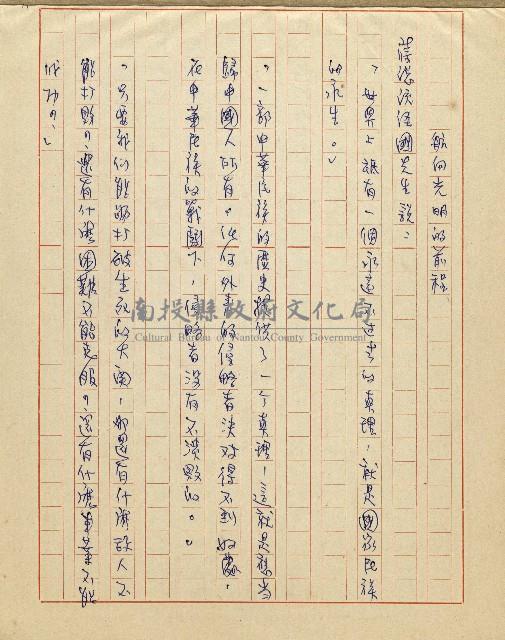 航向光明的前程
蔣總統經國先生說：
「世界上祇有一個永遠不過去的真理，就是國家民族
的永生。」
「一部中華民族的歷史提供了一個真理！這就是應當
歸中國人所有。任何外來的侵略者決對得不到好處，
在中華民族的戰鬥下，侵略者沒有不潰敗的。」
「只要我們能夠打破生死的大關，那還有什麼敵人不
能打敗的，還有什麼困難不能克服的，還有什麼事業不能
成功的。」
南投縣政府文化局
Cultural Bureau of Nantou County Government